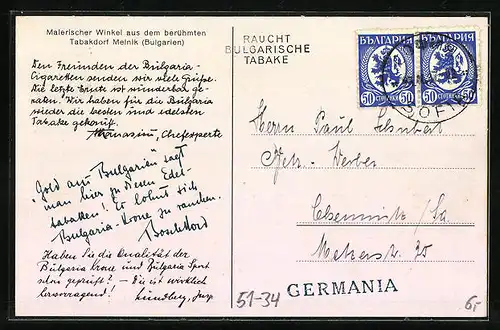 Malerischer Winkel aus dem berühmten
Tabakdorf Melnik (Bulgarien)
Den Freunden der Bulgaria-
Cigaretten senden wir viele Grüsse.
Die letzte Ernte ist wunderbar ge-
raten! Wir haben für die Bulgaria
wieder die besten und edelsten
Tabake gekauft.
Athanasiu, Chefexperte
"Gold aus Bulgarien" sagt
man hier zu diesen Edel-
tabaken! Es lohnt sich
Bulgaria-Krone zu rauchen.
Haben Sie die Qualität der
Bulgaria Krone und Bulgaria Sport
schon geprüft? - Sie ist wirklich
hervorragend!
RAUCHT
BULGARISCHE
TABAKE
БЪЛГАРИЯ
50 СТОТИНКИ 50
БЪЛГАРИЯ
50 СТОТИНКИ 50
SOFIA
Herrn Paul Schubert
Chemnitz/Sa.
Metzerstr. 20
51-34
GERMANIA
6,-